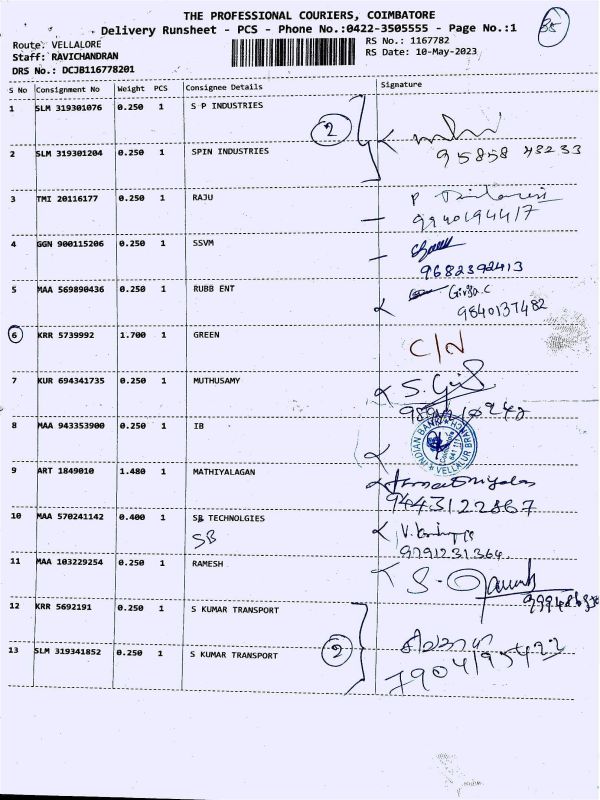 THE PROFESSIONAL COURIERS, COIMBATORE
Delivery Runsheet - PCS - Phone No.:0422-3505555 - Page No.:1
Route: VELLALORE
Staff: RAVICHANDRAN
DRS No.: DCJB116778201
RS No.: 1167782
RS Date: 10-May-2023
S No Consignment No Weight PCS Consignee Details Signature
1 SLM 319301076 0.250 1 S P INDUSTRIES
2
2 SLM 319301204 0.250 1 SPIN INDUSTRIES 95858 48233
3 TMI 20116177 0.250 1 RAJU
9940194417
4 GGN 900115206 0.250 1 SSVM
9682392413
5 MAA 569890436 0.250 1 RUBB ENT Girija.C
9840137482
6 KRR 5739992 1.700 1 GREEN C/N
7 KUR 694341735 0.250 1 MUTHUSAMY
8 MAA 943353900 0.250 1 IB
INDIAN BANK VELLALUR BRANCH
9 ART 1849010 1.480 1 MATHIYALAGAN
9443122867
10 MAA 570241142 0.400 1 SB TECHNOLGIES
SB
9791231364
11 MAA 103229254 0.250 1 RAMESH
12 KRR 5692191 0.250 1 S KUMAR TRANSPORT
2
13 SLM 319341852 0.250 1 S KUMAR TRANSPORT
7904195422